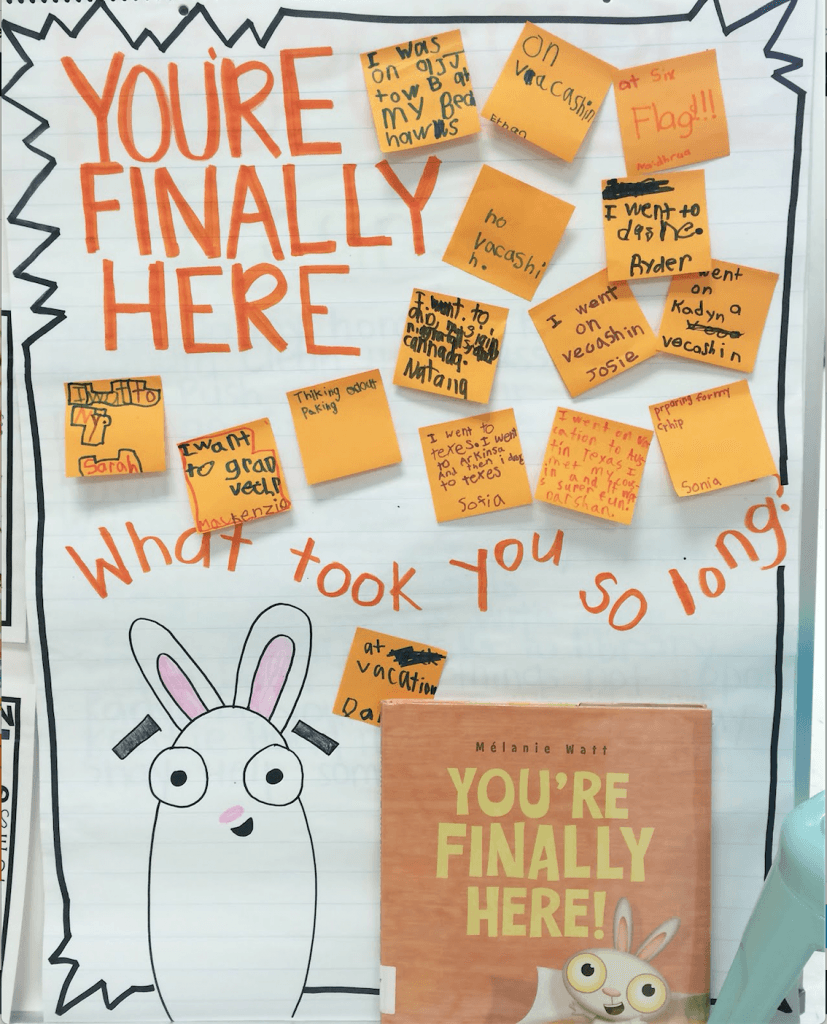 YOU'RE
FINALLY
HERE
I was
on a
tow B at
my Bed
on
vacashin
Ethan
at Six
Flag!!!
no
vacashi
n.
I went to
Ryder
went
on
Kadyn a
vecashin
I went
on
vecashin
JOSIE
I. went. to
cannada.
Natang
I well to
My
Sarah
I want
to gran
MacKenzie
Thiking about
Paking
I went to
texes. I went
to Arkinsa
And then i
to texes
Sofia
I went on
cation to Aus
tin Texas I
met my
in and
s super fun.
Darshan.
prparing for my
crhip
Sonia
What took you so long?
at
vacation
Da
Mélanie Watt
YOU'RE
FINALLY
HERE!